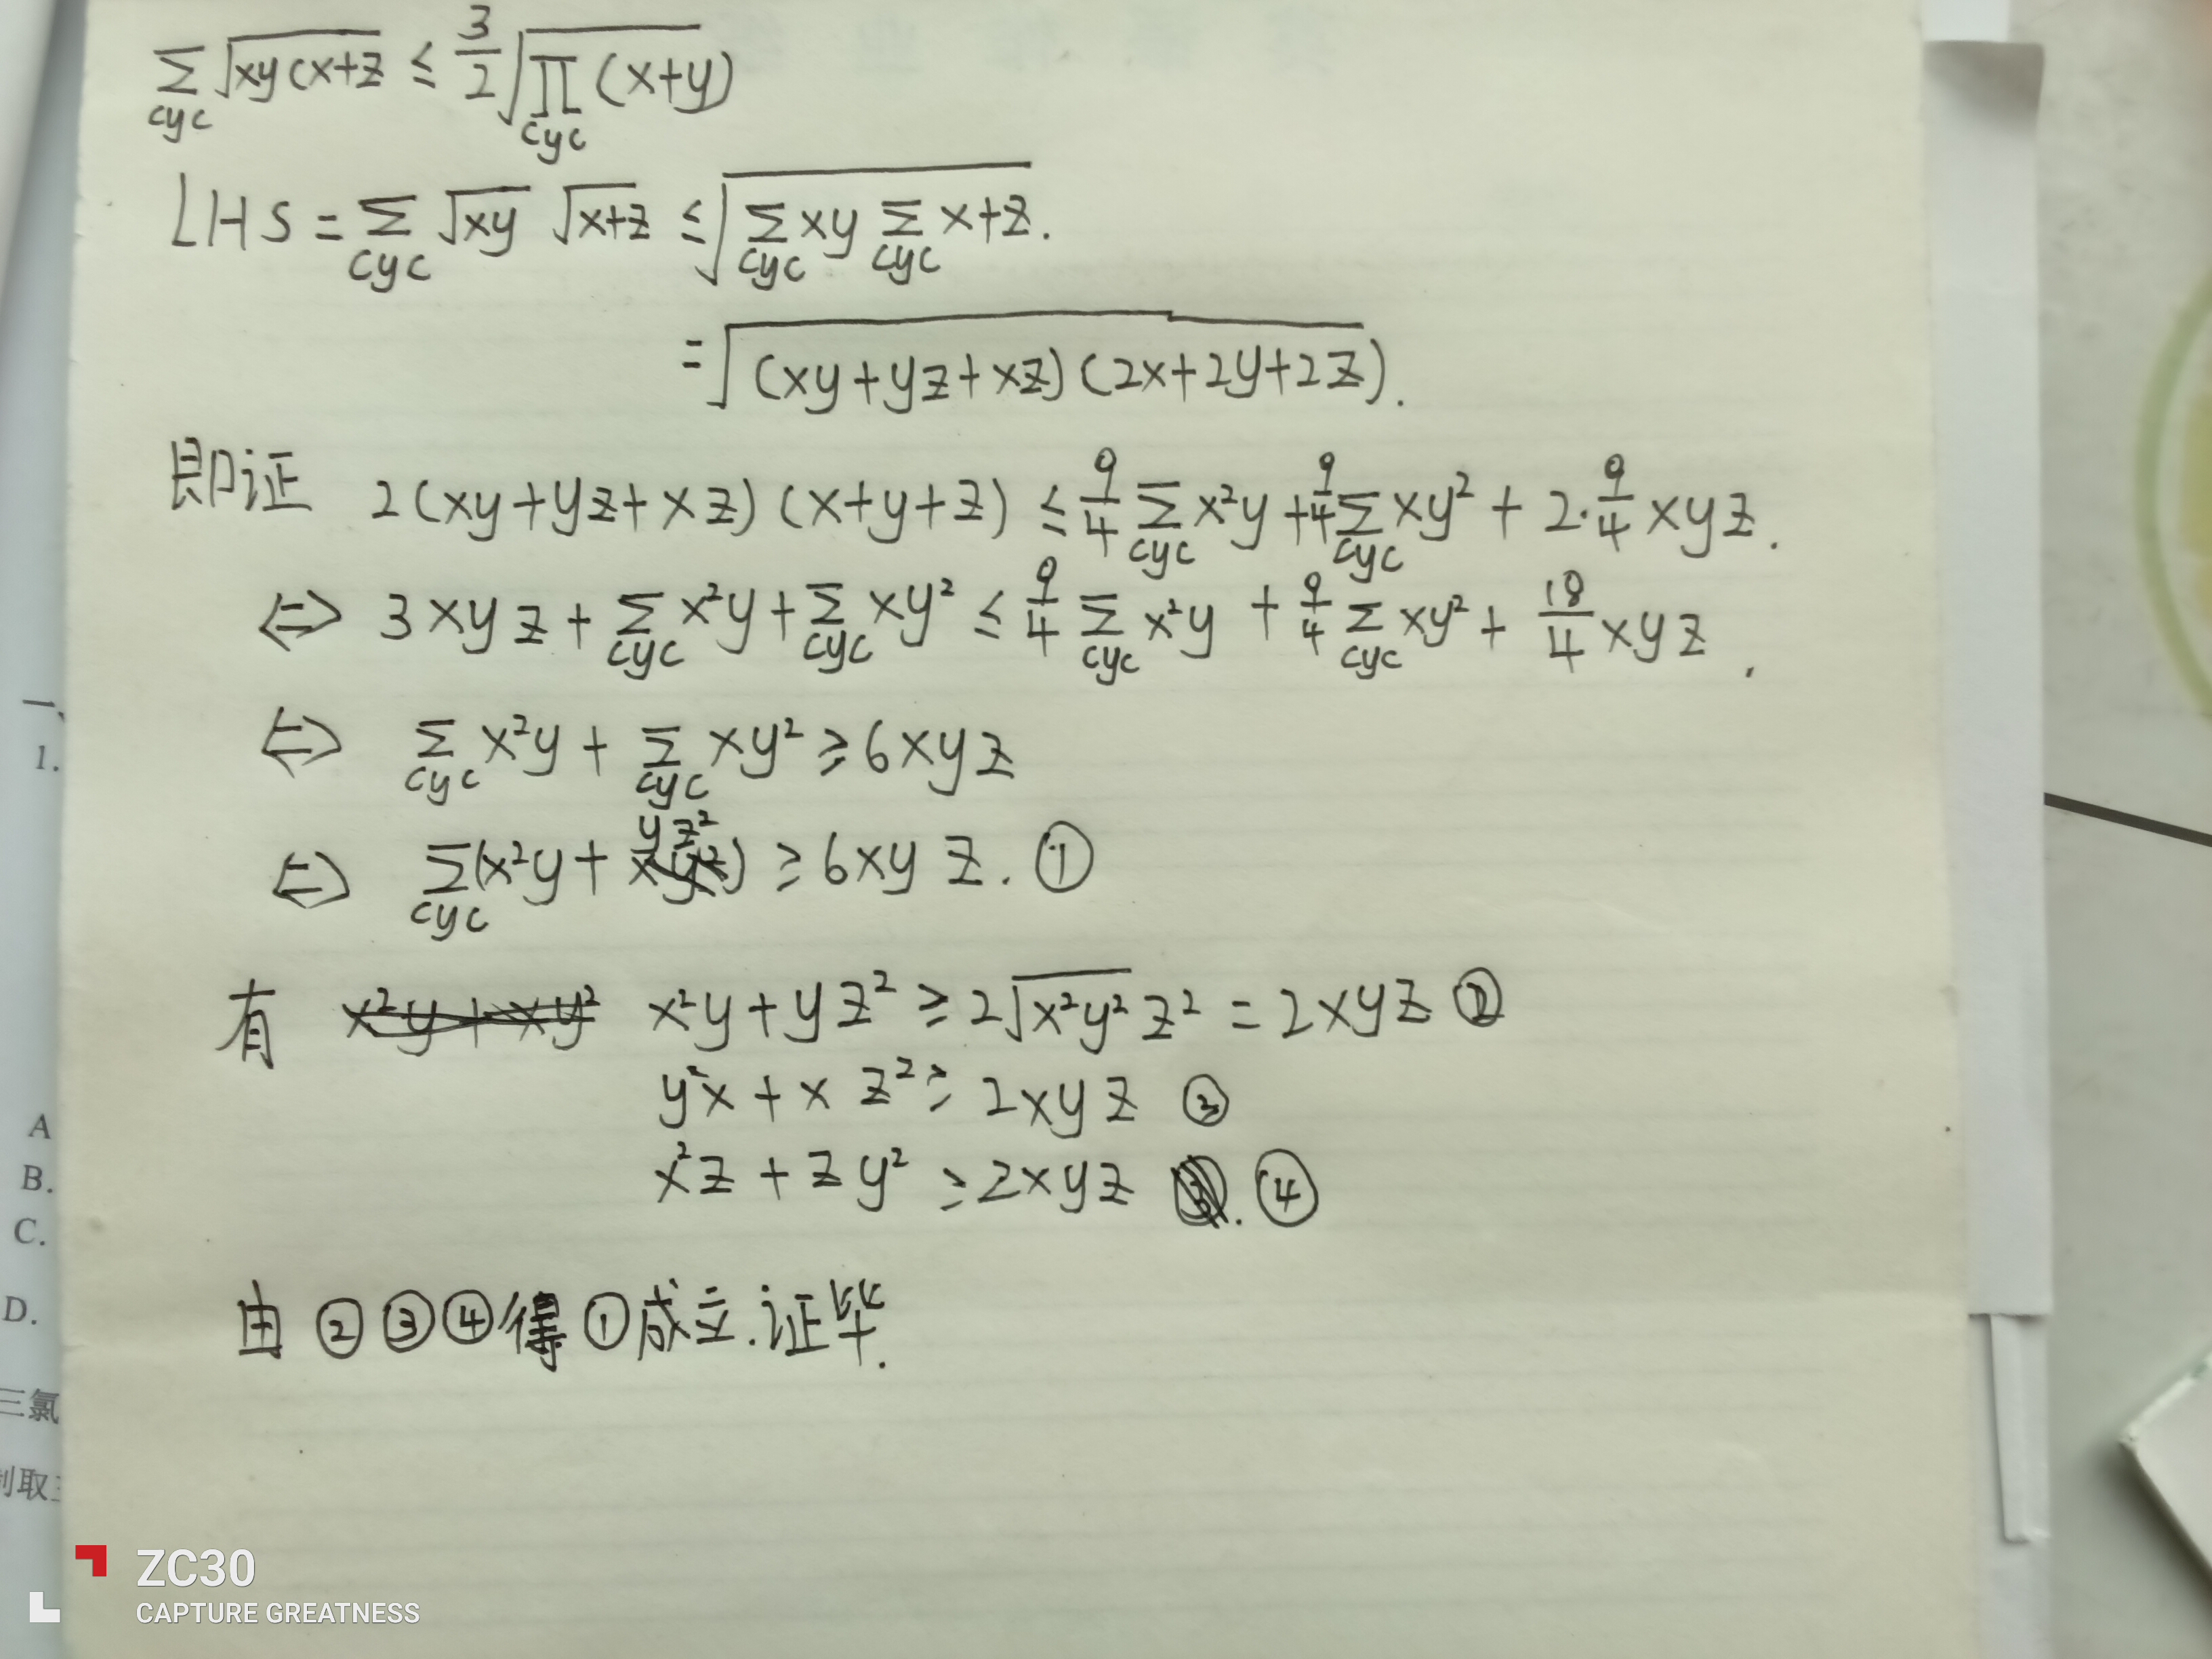 ∑cyc √xy(x+z) ≤ 3/2 √∏cyc (x+y)
LHS = ∑cyc √xy √x+z ≤ √∑cyc xy ∑cyc x+z.
= √(xy+yz+xz)(2x+2y+2z).
即证 2(xy+yz+xz)(x+y+z) ≤ 9/4 ∑cyc x²y + 9/4 ∑cyc xy² + 2·9/4 xyz.
⇔ 3xyz + ∑cyc x²y + ∑cyc xy² ≤ 9/4 ∑cyc x²y + 9/4 ∑cyc xy² + 18/4 xyz.
⇔ ∑cyc x²y + ∑cyc xy² ≥ 6xyz
⇔ ∑cyc (x²y + yz²) ≥ 6xyz. ①
有 x²y + yz² ≥ 2√x²y² z² = 2xyz ②
y²x + xz² ≥ 2xyz ③
x²z + zy² ≥ 2xyz. ④
由②③④得①成立.证毕.
一、
1.
A
B.
C.
D.
三氯
制取
ZC30
CAPTURE GREATNESS